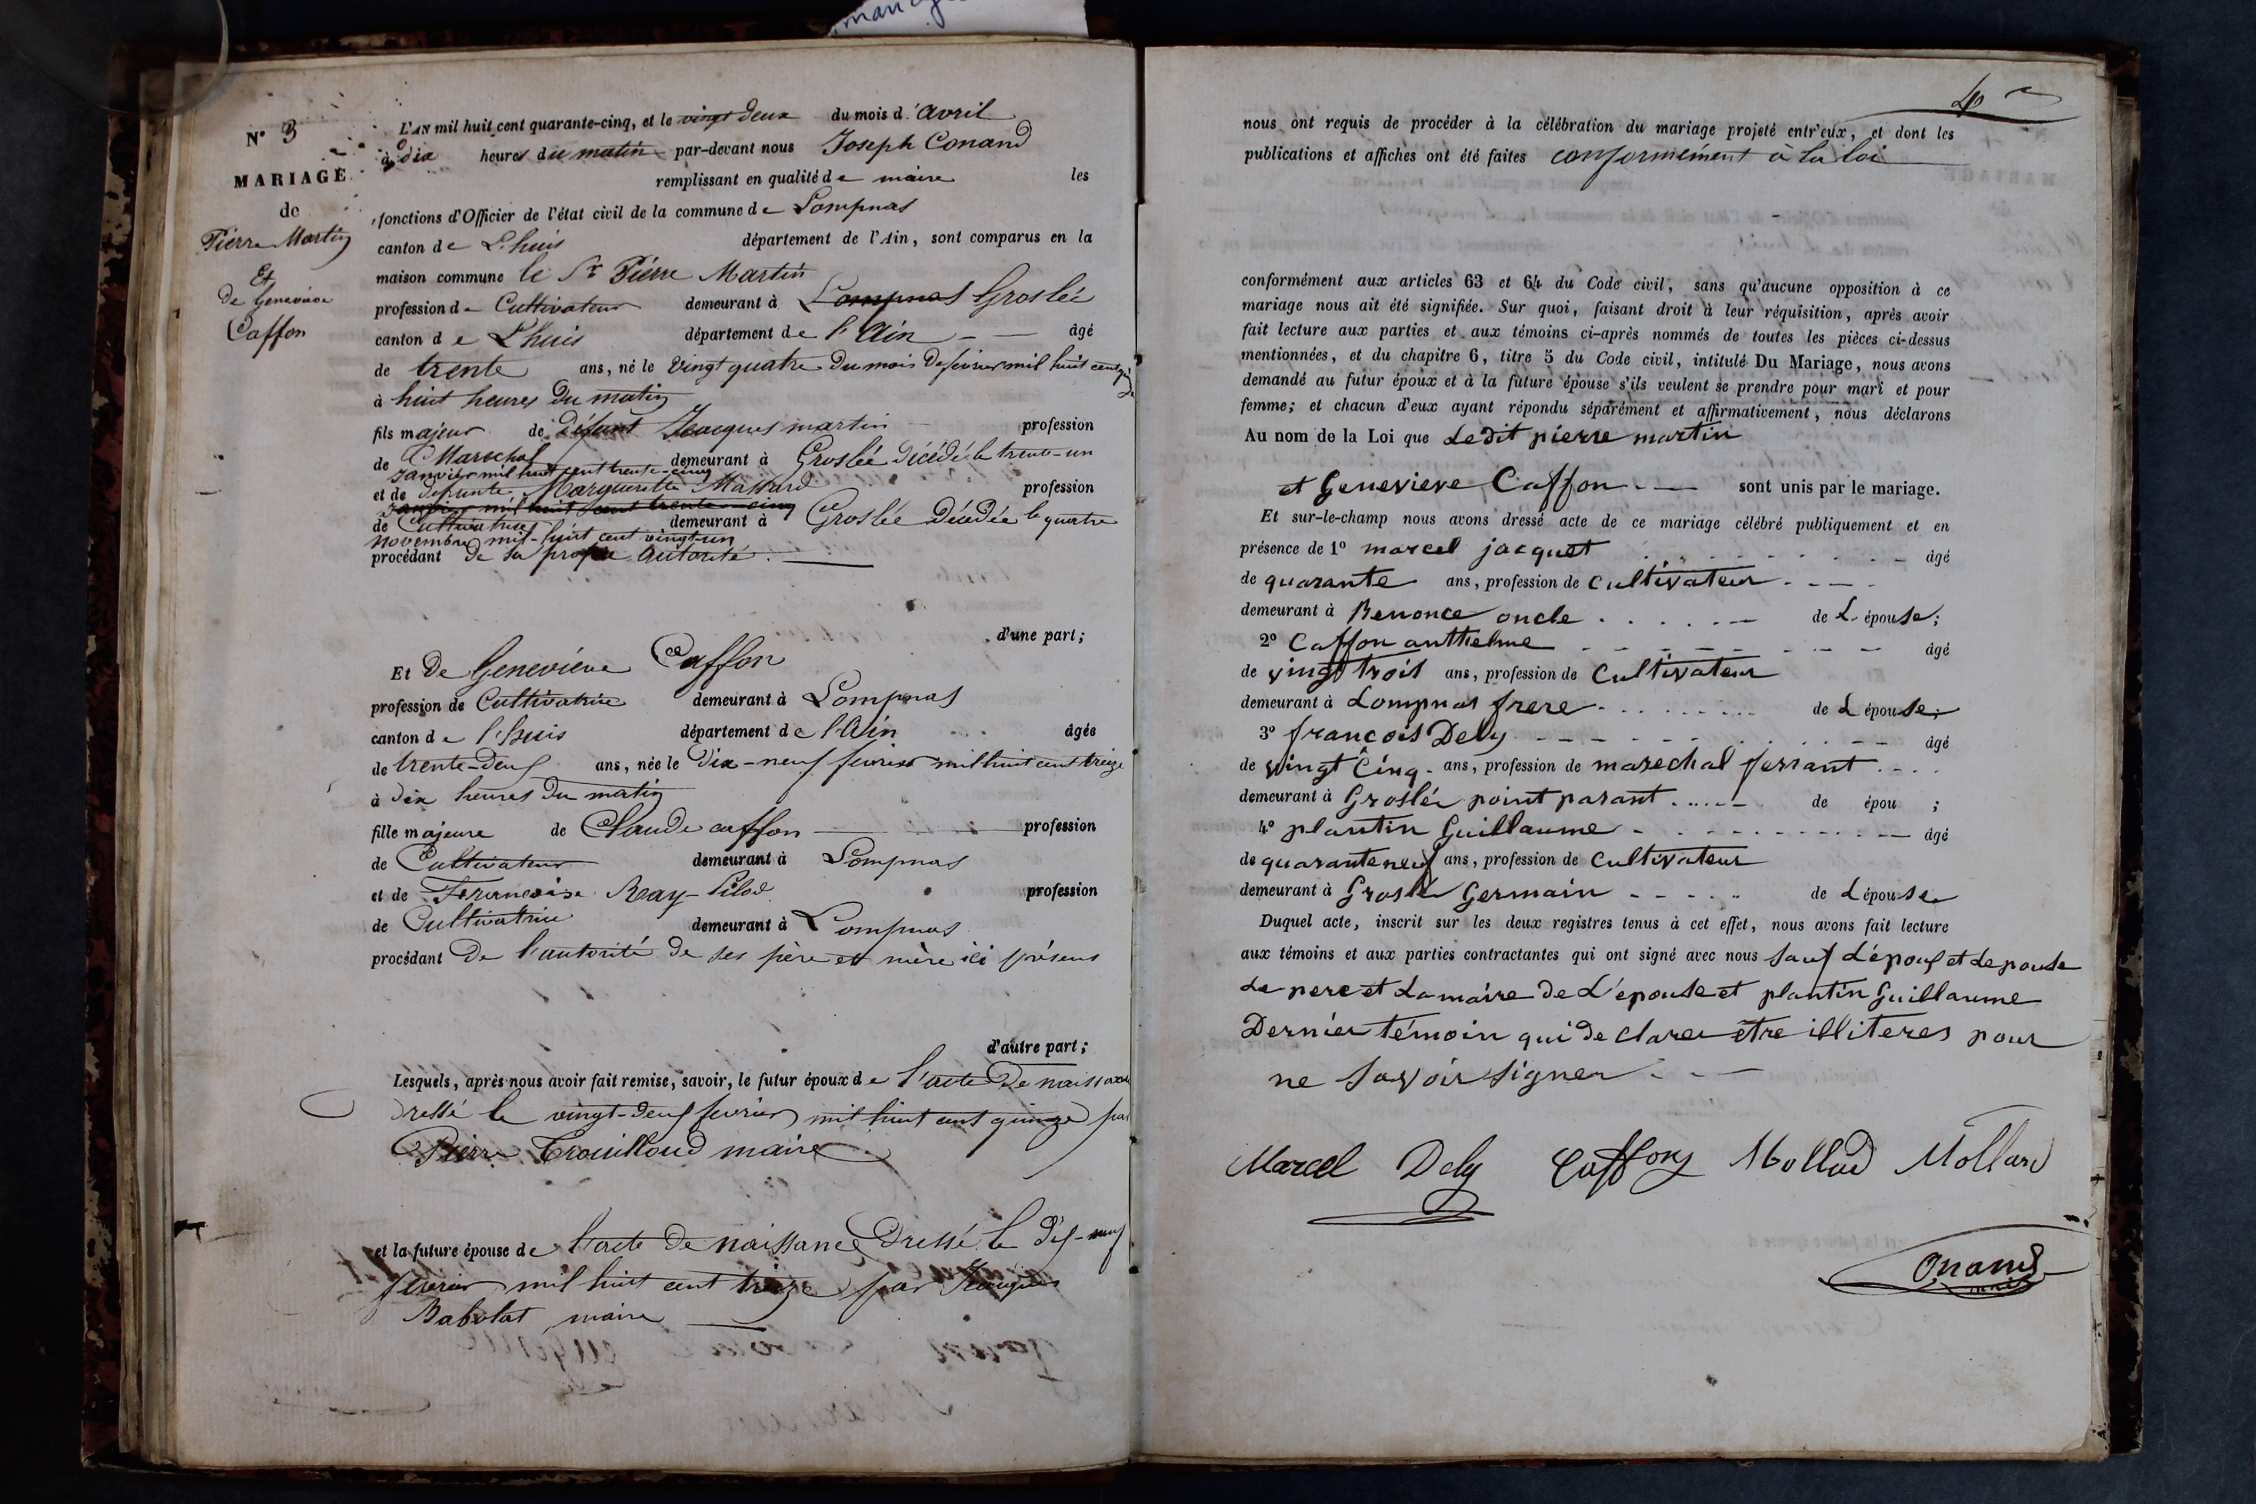 N° 3
MARIAGE
de
Pierre Martin
Et
de Genevieve
Caffon
L'AN mil huit cent quarante-cinq, et le vingt deux du mois d'avril
à dix heures du matin par-devant nous Joseph Conand
remplissant en qualité de maire les
fonctions d'Officier de l'état civil de la commune de Lompnas
canton de L'huis département de l'Ain, sont comparus en la
maison commune le Sr Pierre Martin
profession de Cultivateur demeurant à Lompnas Groslée
canton de L'huis département de l'Ain âgé
de trente ans, né le vingt quatre du mois de fevrier mil huit cent
à huit heures du matin
fils majeur de défunt Jacques martin profession
de Marechal demeurant à Groslée décédé le trente-un
janvier mil huit cent trente-cinq
et de defunte Marguerite Massard profession
janvier mil huit cent trente-cinq
de Cultivatrice demeurant à Groslée décédée le quatre
novembre mil-huit cent vingt-un
procédant de sa propre autorité.
d'une part;
Et de Geneviève Caffon
profession de Cultivatrice demeurant à Lompnas
canton de l'huis département de l'Ain âgée
de trente-deux ans, née le dix-neuf fevrier mil huit cent treize
à dix heures du matin
fille majeure de Claude caffon profession
de Cultivateur demeurant à Lompnas
et de Francoise Ray- profession
de Cultivatrice demeurant à Lompnas
procédant de l'autorité de ses père et mère ici présens
d'autre part;
Lesquels, après nous avoir fait remise, savoir, le futur époux de l'acte de naissance
dressé le vingt-deux fevrier mil huit cent quinze par
Pierre Trouilloud maire
et la future épouse de l'acte de naissance dressé le dix-neuf
fevrier mil huit cent treize par Jacques
Babolat maire
4
nous ont requis de procéder à la célébration du mariage projeté entr'eux, et dont les
publications et affiches ont été faites conformément à la loi
conformément aux articles 63 et 64 du Code civil, sans qu'aucune opposition à ce
mariage nous ait été signifiée. Sur quoi, faisant droit à leur réquisition, après avoir
fait lecture aux parties et aux témoins ci-après nommés de toutes les pièces ci-dessus
mentionnées, et du chapitre 6, titre 5 du Code civil, intitulé Du Mariage, nous avons
demandé au futur époux et à la future épouse s'ils veulent se prendre pour mari et pour
femme; et chacun d'eux ayant répondu séparément et affirmativement, nous déclarons
Au nom de la Loi que Ledit pierre martin
et Genevieve Caffon sont unis par le mariage.
Et sur-le-champ nous avons dressé acte de ce mariage célébré publiquement et en
présence de 1° marcel jacquet âgé
de quarante ans, profession de cultivateur
demeurant à Benonce oncle de L épouse;
2° Caffon anthelme âgé
de vingt trois ans, profession de cultivateur
demeurant à Lompnas frere de L épouse;
3° francois Dely âgé
de vingt cinq ans, profession de marechal ferrant
demeurant à Groslée point parant de épou ;
4° plantin Guillaume âgé
de quarante neuf ans, profession de cultivateur
demeurant à Groslé Germain de L épouse
Duquel acte, inscrit sur les deux registres tenus à cet effet, nous avons fait lecture
aux témoins et aux parties contractantes qui ont signé avec nous sauf L'époux et Lepouse
Le pere et La maire de L'epouse et plantin Guillaume
Dernier témoin qui de clarer être illiteres pour
ne savoir signer
Marcel Dely Caffon Mollard Mollard
Conand